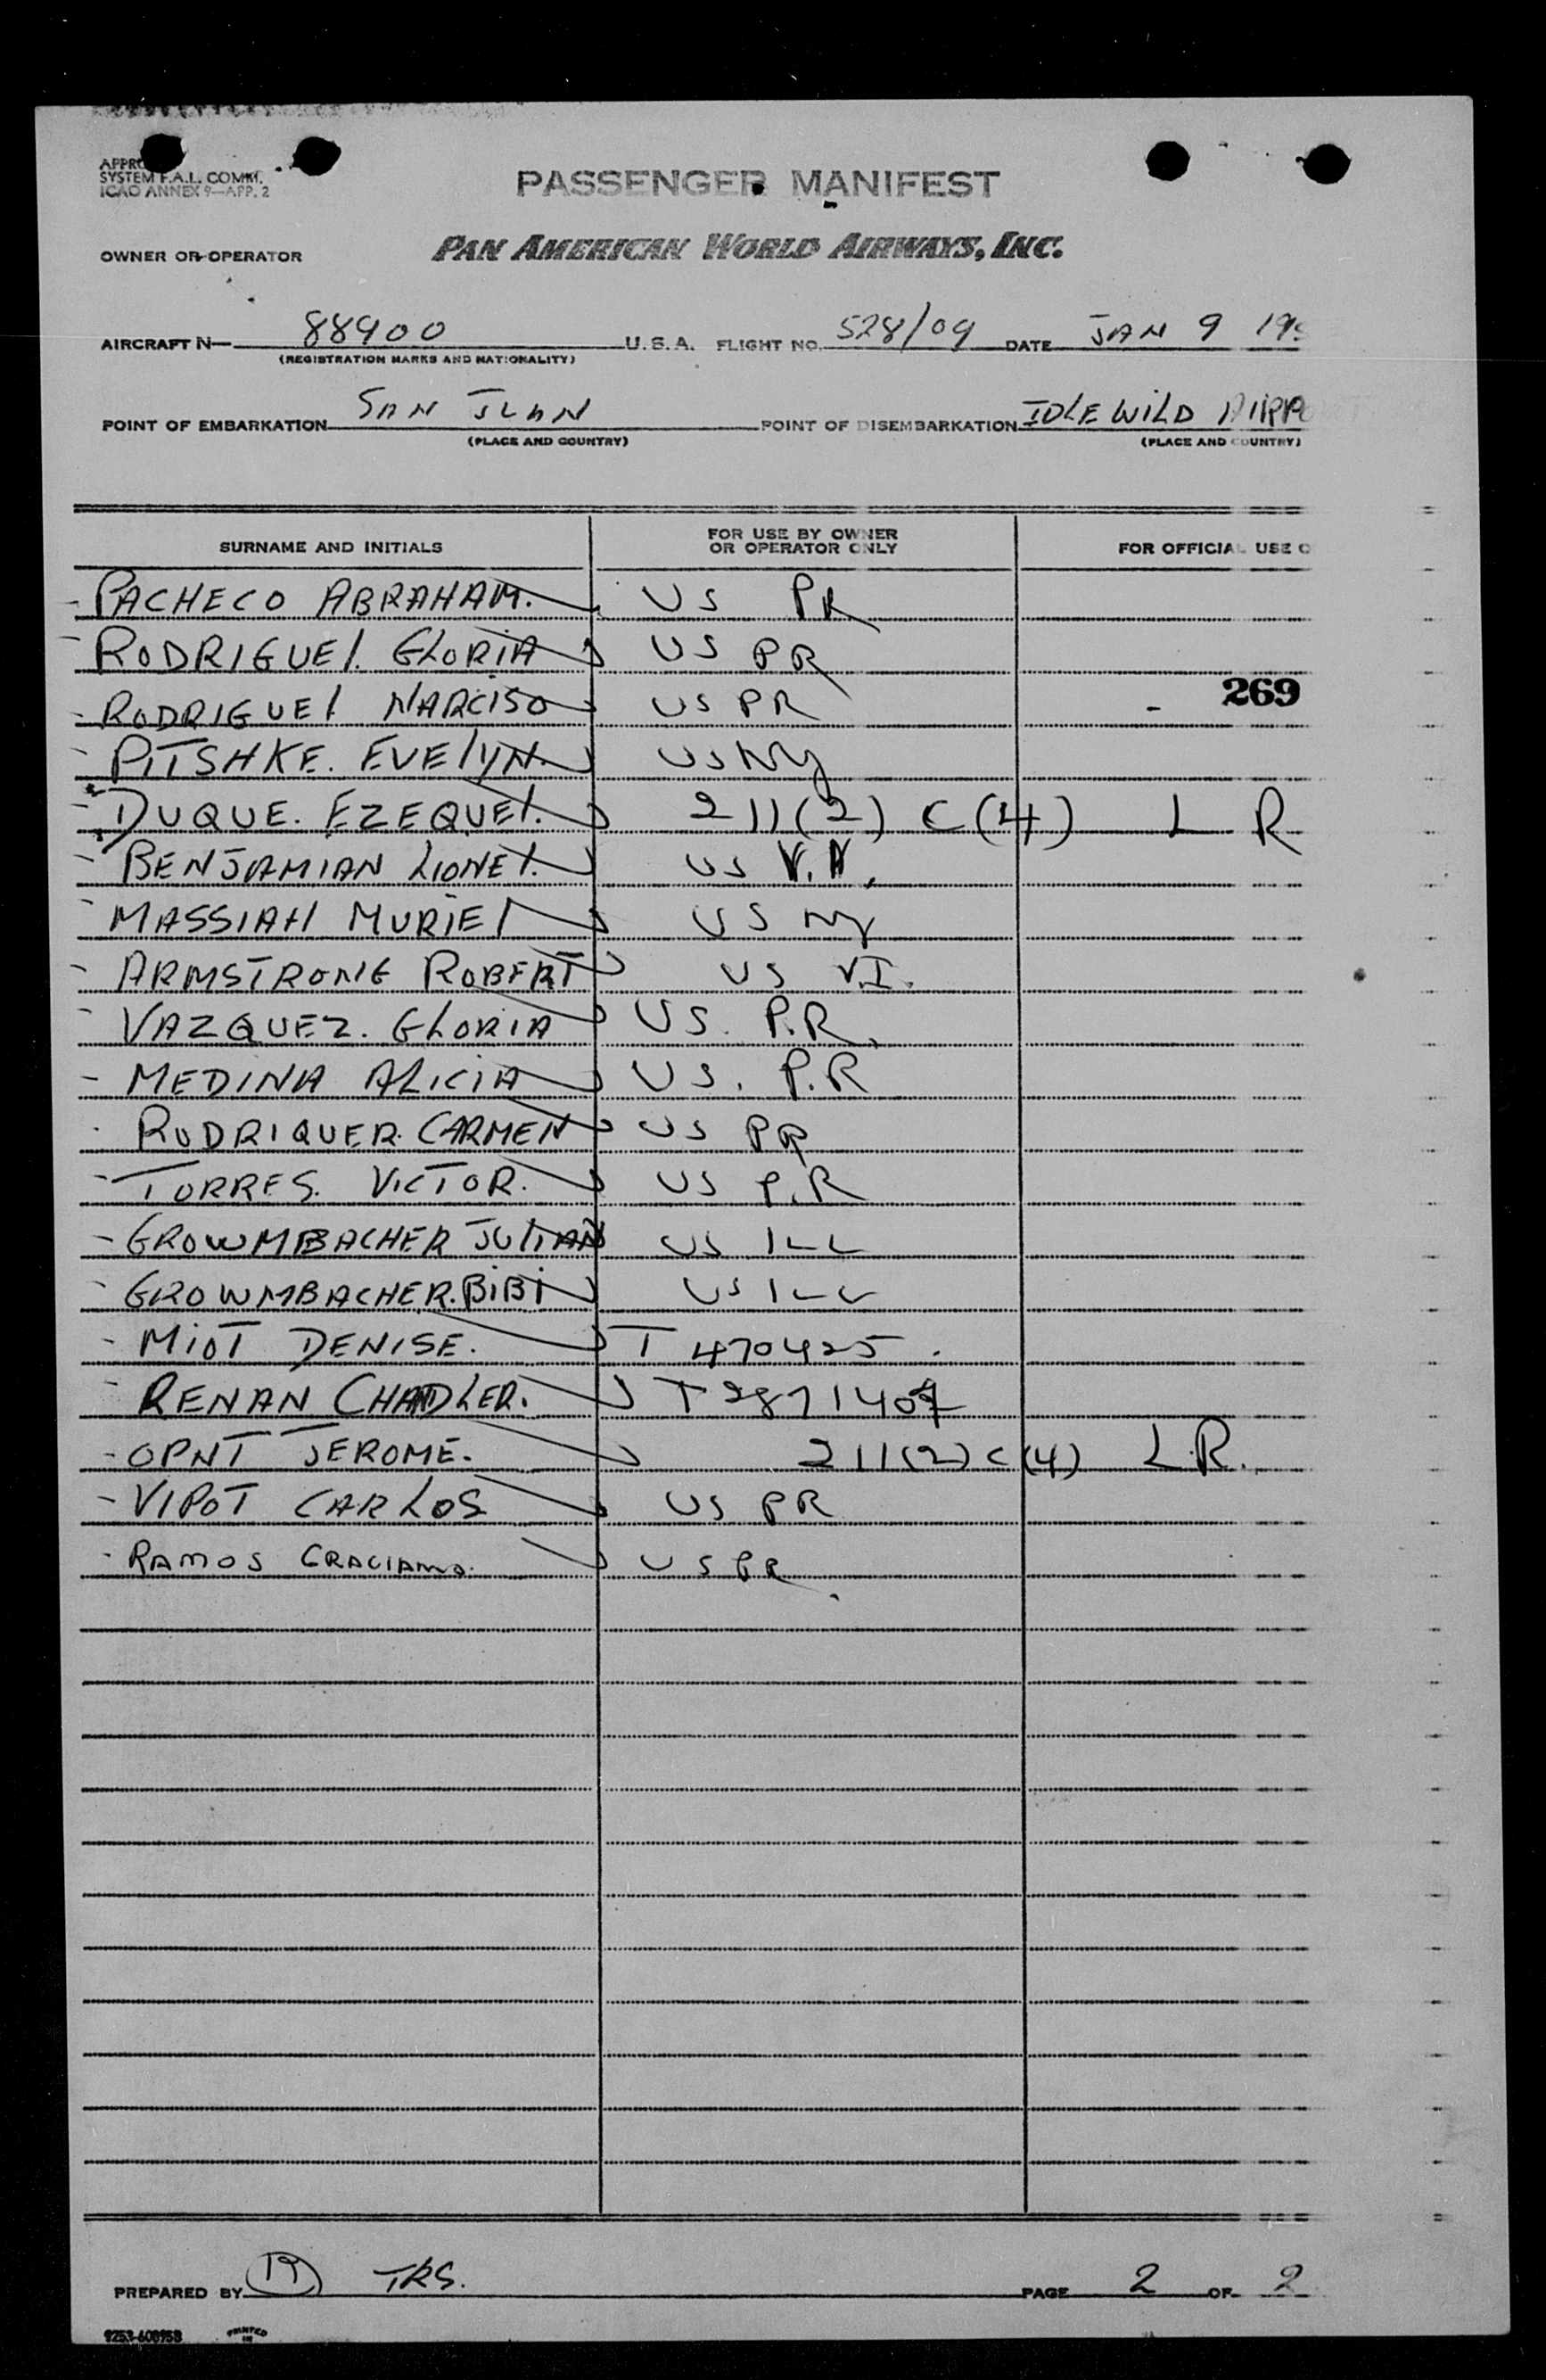 SYSTEM F.A.L. COMM.
ICAO ANNEX 9—APP. 2
PASSENGER MANIFEST
OWNER OR OPERATOR PAN AMERICAN WORLD AIRWAYS, INC.
AIRCRAFT N— 88900 U.S.A. FLIGHT NO. 528/09 DATE JAN 9
(REGISTRATION MARKS AND NATIONALITY)
POINT OF EMBARKATION SAN JUAN POINT OF DISEMBARKATION IDLEWILD
(PLACE AND COUNTRY) (PLACE AND COUNTRY)
SURNAME AND INITIALS FOR USE BY OWNER OR OPERATOR ONLY FOR OFFICIAL USE
PACHECO ABRAHAM. US PR
RODRIGUEl. GLORIA US PR
269
RODRIGUEl NARCISO US PR
PITSHKE. EVElYN. US NY
DUQUE. EZEQUEl. 211(2) C(4) L R
BENJAMIAN LIONEl. US
MASSIAH MURIEl US NY
ARMSTRONG ROBERT US V.I.
VAZQUEZ. GLORIA US. P.R.
MEDINA ALICIA US. P.R
RODRIQUER. CARMEN US PR
TORRES. VICTOR. US P.R
GROWMBACHER JULIAN US ILL
GROWMBACHER. BIBI US ILL
MIOT DENISE. T 470425.
RENAN CHANDLER.
OPNT JEROME. 211(2) C(4) L.R.
VIPOT CARLOS US PR
RAMOS GRACIANO. US PR
PREPARED BY TRS. PAGE 2 OF 2
9253-608958 PRINTED IN